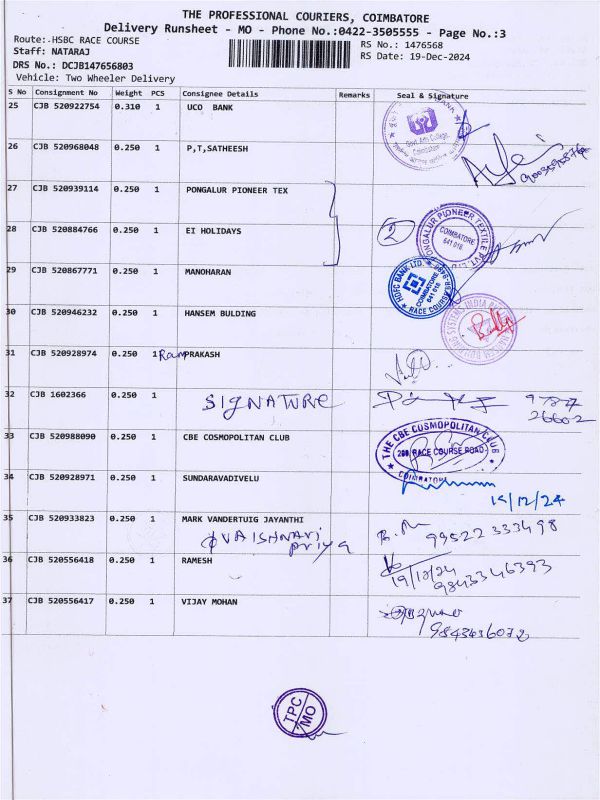 THE PROFESSIONAL COURIERS, COIMBATORE
Delivery Runsheet - MO - Phone No.:0422-3505555 - Page No.:3
Route:-HSBC RACE COURSE
RS No.: 1476568
Staff: NATARAJ
RS Date: 19-Dec-2024
DRS No.: DCJB147656803
Vehicle: Two Wheeler Delivery
S No Consignment No Weight PCS Consignee Details Remarks Seal & Signature
25 CJB 520922754 0.310 1 UCO BANK
Govt. Arts College,
Coimbatore
26 CJB 520968048 0.250 1 P,T,SATHEESH
27 CJB 520939114 0.250 1 PONGALUR PIONEER TEX
28 CJB 520884766 0.250 1 EI HOLIDAYS
2
PONGALUR PIONEER TEXTILE PVT. LTD
COIMBATORE
641 018
29 CJB 520867771 0.250 1 MANOHARAN
HDFC BANK LTD.
COIMBATORE
641 018
RACE COURSE
30 CJB 520946232 0.250 1 HANSEM BULDING
BUILDING SYSTEMS INDIA
31 CJB 520928974 0.250 1 Ram PRAKASH
32 CJB 1602366 0.250 1 SIGNATURE
26602
33 CJB 520988090 0.250 1 CBE COSMOPOLITAN CLUB
THE CBE COSMOPOLITAN CLUB
RACE COURSE ROAD
COIMBATORE
34 CJB 520928971 0.250 1 SUNDARAVADIVELU
19/12/24
35 CJB 520933823 0.250 1 MARK VANDERTUIG JAYANTHI
VAISHNAVI
Priya
99522333498
36 CJB 520556418 0.250 1 RAMESH
19/12/24
9843346393
37 CJB 520556417 0.250 1 VIJAY MOHAN
9843436072
TPC
MO